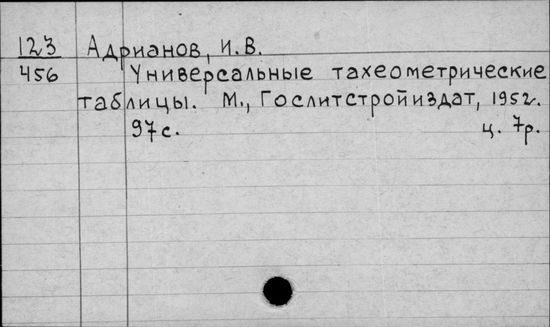 123 Адрианов, И.В.
456 Универсальные тахеометрические
таблицы. М., Гослитстройиздат, 1952.
97с. ц. 7р.